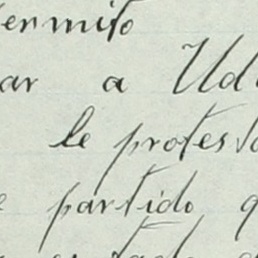 ermito
ar a Ud
le protes
partido q